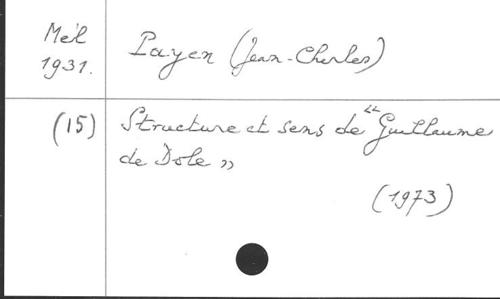 Mél
1931.
Payen (Jean-Charles)
(15)
Structure et sens de "Guillaume
de Dole"
(1973)